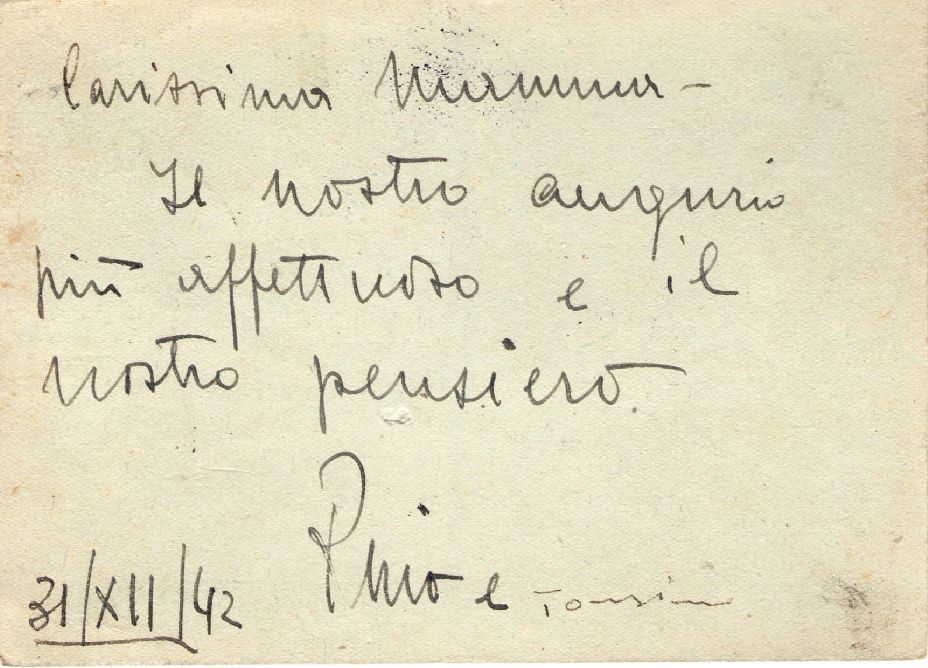 Carissima Mamma -
Il nostro augurio
più affettuoso e il
nostro pensiero.
Pino e
31/XII/42